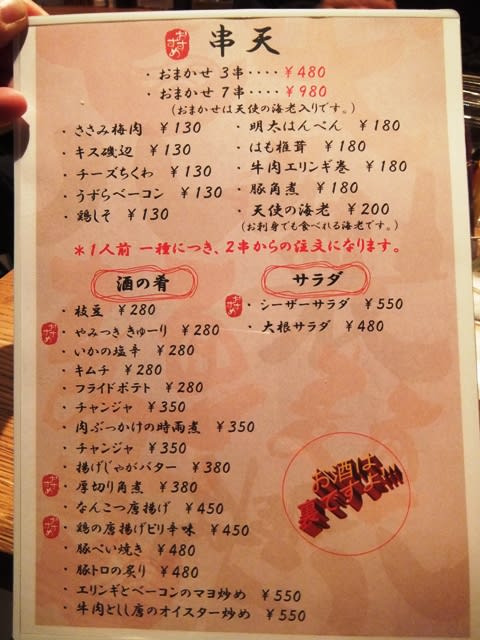 おすすめ 串天
・おまかせ 3串････ ￥480
・おまかせ 7串････ ￥980
(おまかせは天使の海老入りです。)
・ささみ梅肉 ￥130
・キス磯辺 ￥130
・チーズちくわ ￥130
・うずらベーコン ￥130
・鶏しそ ￥130
・明太はんぺん ￥180
・はも椎茸 ￥180
・牛肉エリンギ巻 ￥180
・豚角煮 ￥180
・天使の海老 ￥200
(お刺身でも食べれる海老です。)
＊1人前 一種につき、2串からの注文になります。
酒の肴
・枝豆 ￥280
おすすめ ・やみつききゅーり ￥280
・いかの塩辛 ￥280
・キムチ ￥280
・フライドポテト ￥280
・チャンジャ ￥350
・肉ぶっかけの時雨煮 ￥350
・チャンジャ ￥350
・揚げじゃがバター ￥380
おすすめ ・厚切り角煮 ￥380
・なんこつ唐揚げ ￥450
おすすめ ・鶏の唐揚げピリ辛味 ￥450
・豚ぺい焼き ￥480
・豚トロの炙り ￥480
・エリンギとベーコンのマヨ炒め ￥550
・牛肉としし唐のオイスター炒め ￥550
サラダ
おすすめ ・シーザーサラダ ￥550
・大根サラダ ￥480
お酒は
裏ですよ!!!